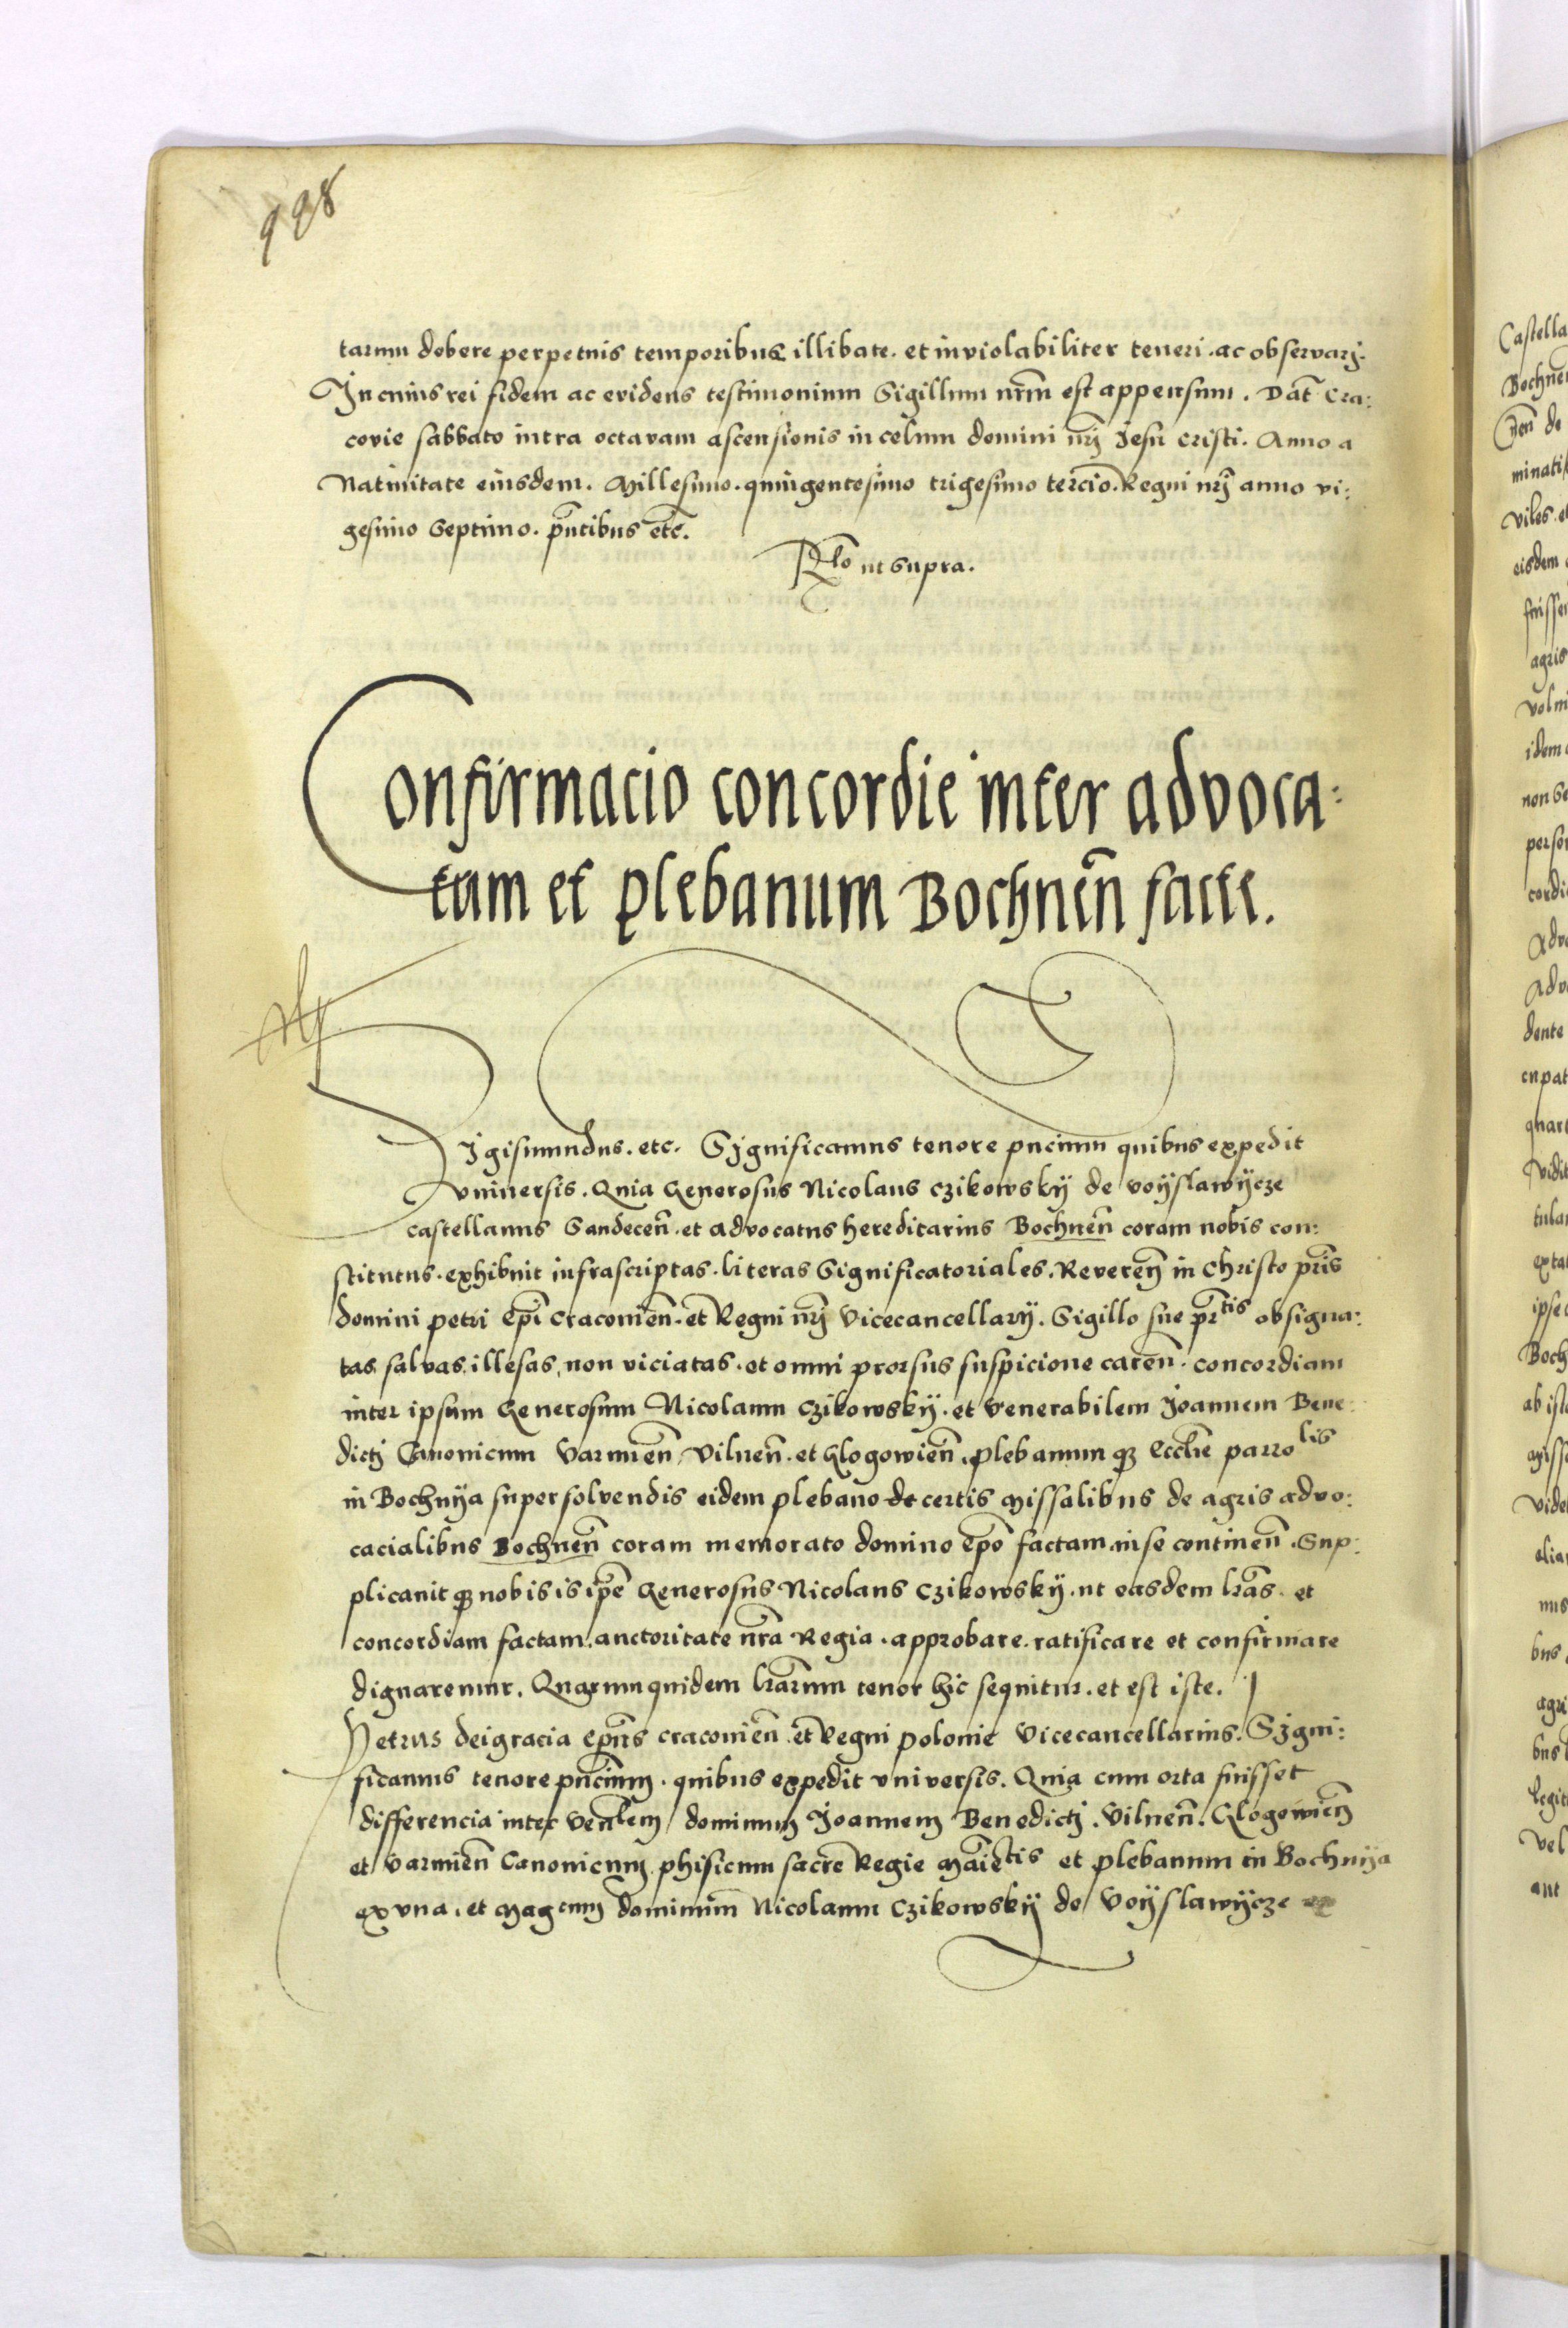 998
tarum debere perpetuis temporibus illibate. et inviolabiliter teneri. ac observarj.
In cuius rei fidem ac evidens testimonium Sigillum nr̃m est appensum. Dat̃ Cra:
covie sabbato intra octavam ascensionis in celum domini nr̃j Jesu cristi. Anno a
Natiuitate eiusdem. Millesimo. quingentesimo trigesimo tercio. Regni nr̃j anno vi:
gesimo Septimo. pñtibus etc̃.
Rlo ut Supra.
Confirmacio concordie inter advoca:
tum et plebanum Bochneñ facte.
Sigismundus. etc. Significamus tenore pñcium quibus expedit
vniuersis. Quia Generosus Nicolaus Czikowskÿ de Voÿslawÿcze
castellanus Sandeceñ. et advocatus hereditarius Bochneñ coram nobis con:
stitutus. exhibuit infrascriptas. literas Significatoriales. Revereñ in Christo pr̃is
domini petri ep̃i Cracovieñ. et Regni nr̃j Vicecancellarÿ. Sigillo sue pr̃tis obsigna:
tas, salvas, illesas, non viciatas. et omni prorsus suspicione careñ. concordiam
inter ipsum Generosum Nicolaum Czikowskÿ. et Venerabilem Joannem Bene:
dictj Canonicum Varmieñ, Vilneñ. et Glogowieñ. plebanum qz Eccl̃ie parrolis
in Bochnÿa super solvendis eidem plebano de certis Missalibus de agris advo:
cacialibus Bochneñ coram memorato domino ep̃o factam. in se contineñ. Sup:
plicauit qz nobis is ip̃e Generosus Nicolaus Czikowskÿ. ut easdem lr̃as. et
concordiam factam. auctoritate nr̃a Regia. approbare. ratificare et confirmare
dignaremur. Quarum quidem lr̃arum tenor hic sequitur. et est iste.
Petrus dei gracia ep̃us cracovieñ. et Regni polonie Vicecancellarius. Signi:
ficamus tenore pñcium. quibus expedit vniversis. Quia cum orta fuisset
differencia inter Veñlem dominum Joannem Benedictj. Vilneñ. Glogowieñ
et Varmieñ Canonicum phisicum sacre Regie Maietis et plebanum in Bochnÿa
ex vna. et Magcum dominum Nicolaum Czikowskÿ de Voÿslawÿcze